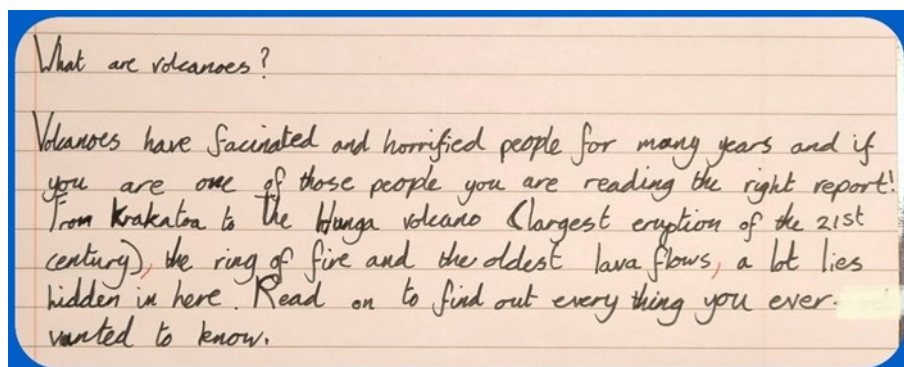 What are volcanoes?
Volcanoes have facinated and horrified people for many years and if
you are one of those people you are reading the right report!
From Krakatoa to the Hunga volcano (largest eruption of the 21st
century), the ring of fire and the oldest lava flows, a lot lies
hidden in here. Read on to find out every thing you ever
wanted to know.